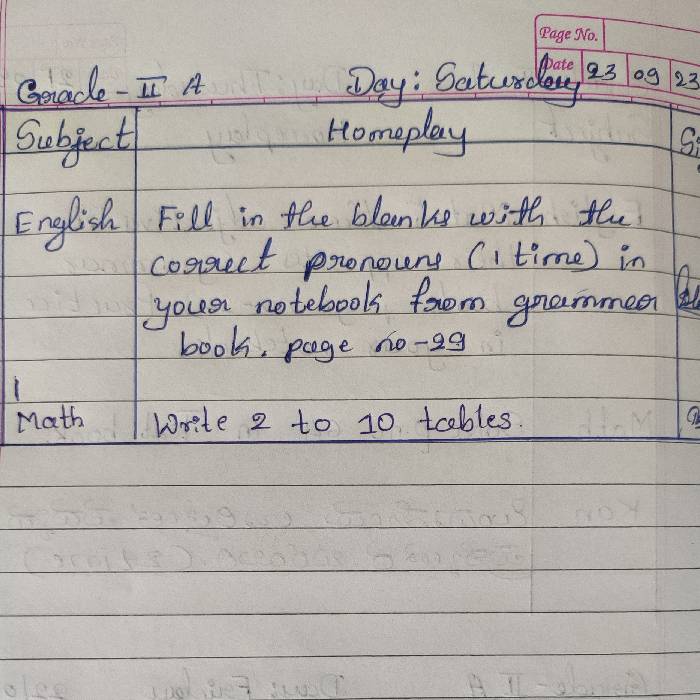 Page No.
Date 23 09 23
Grade - II A Day: Saturday
Subject Homeplay
English Fill in the blanks with the
correct pronouns (1 time) in
your notebook from grammer
book. page no-29
Math Write 2 to 10 tables.